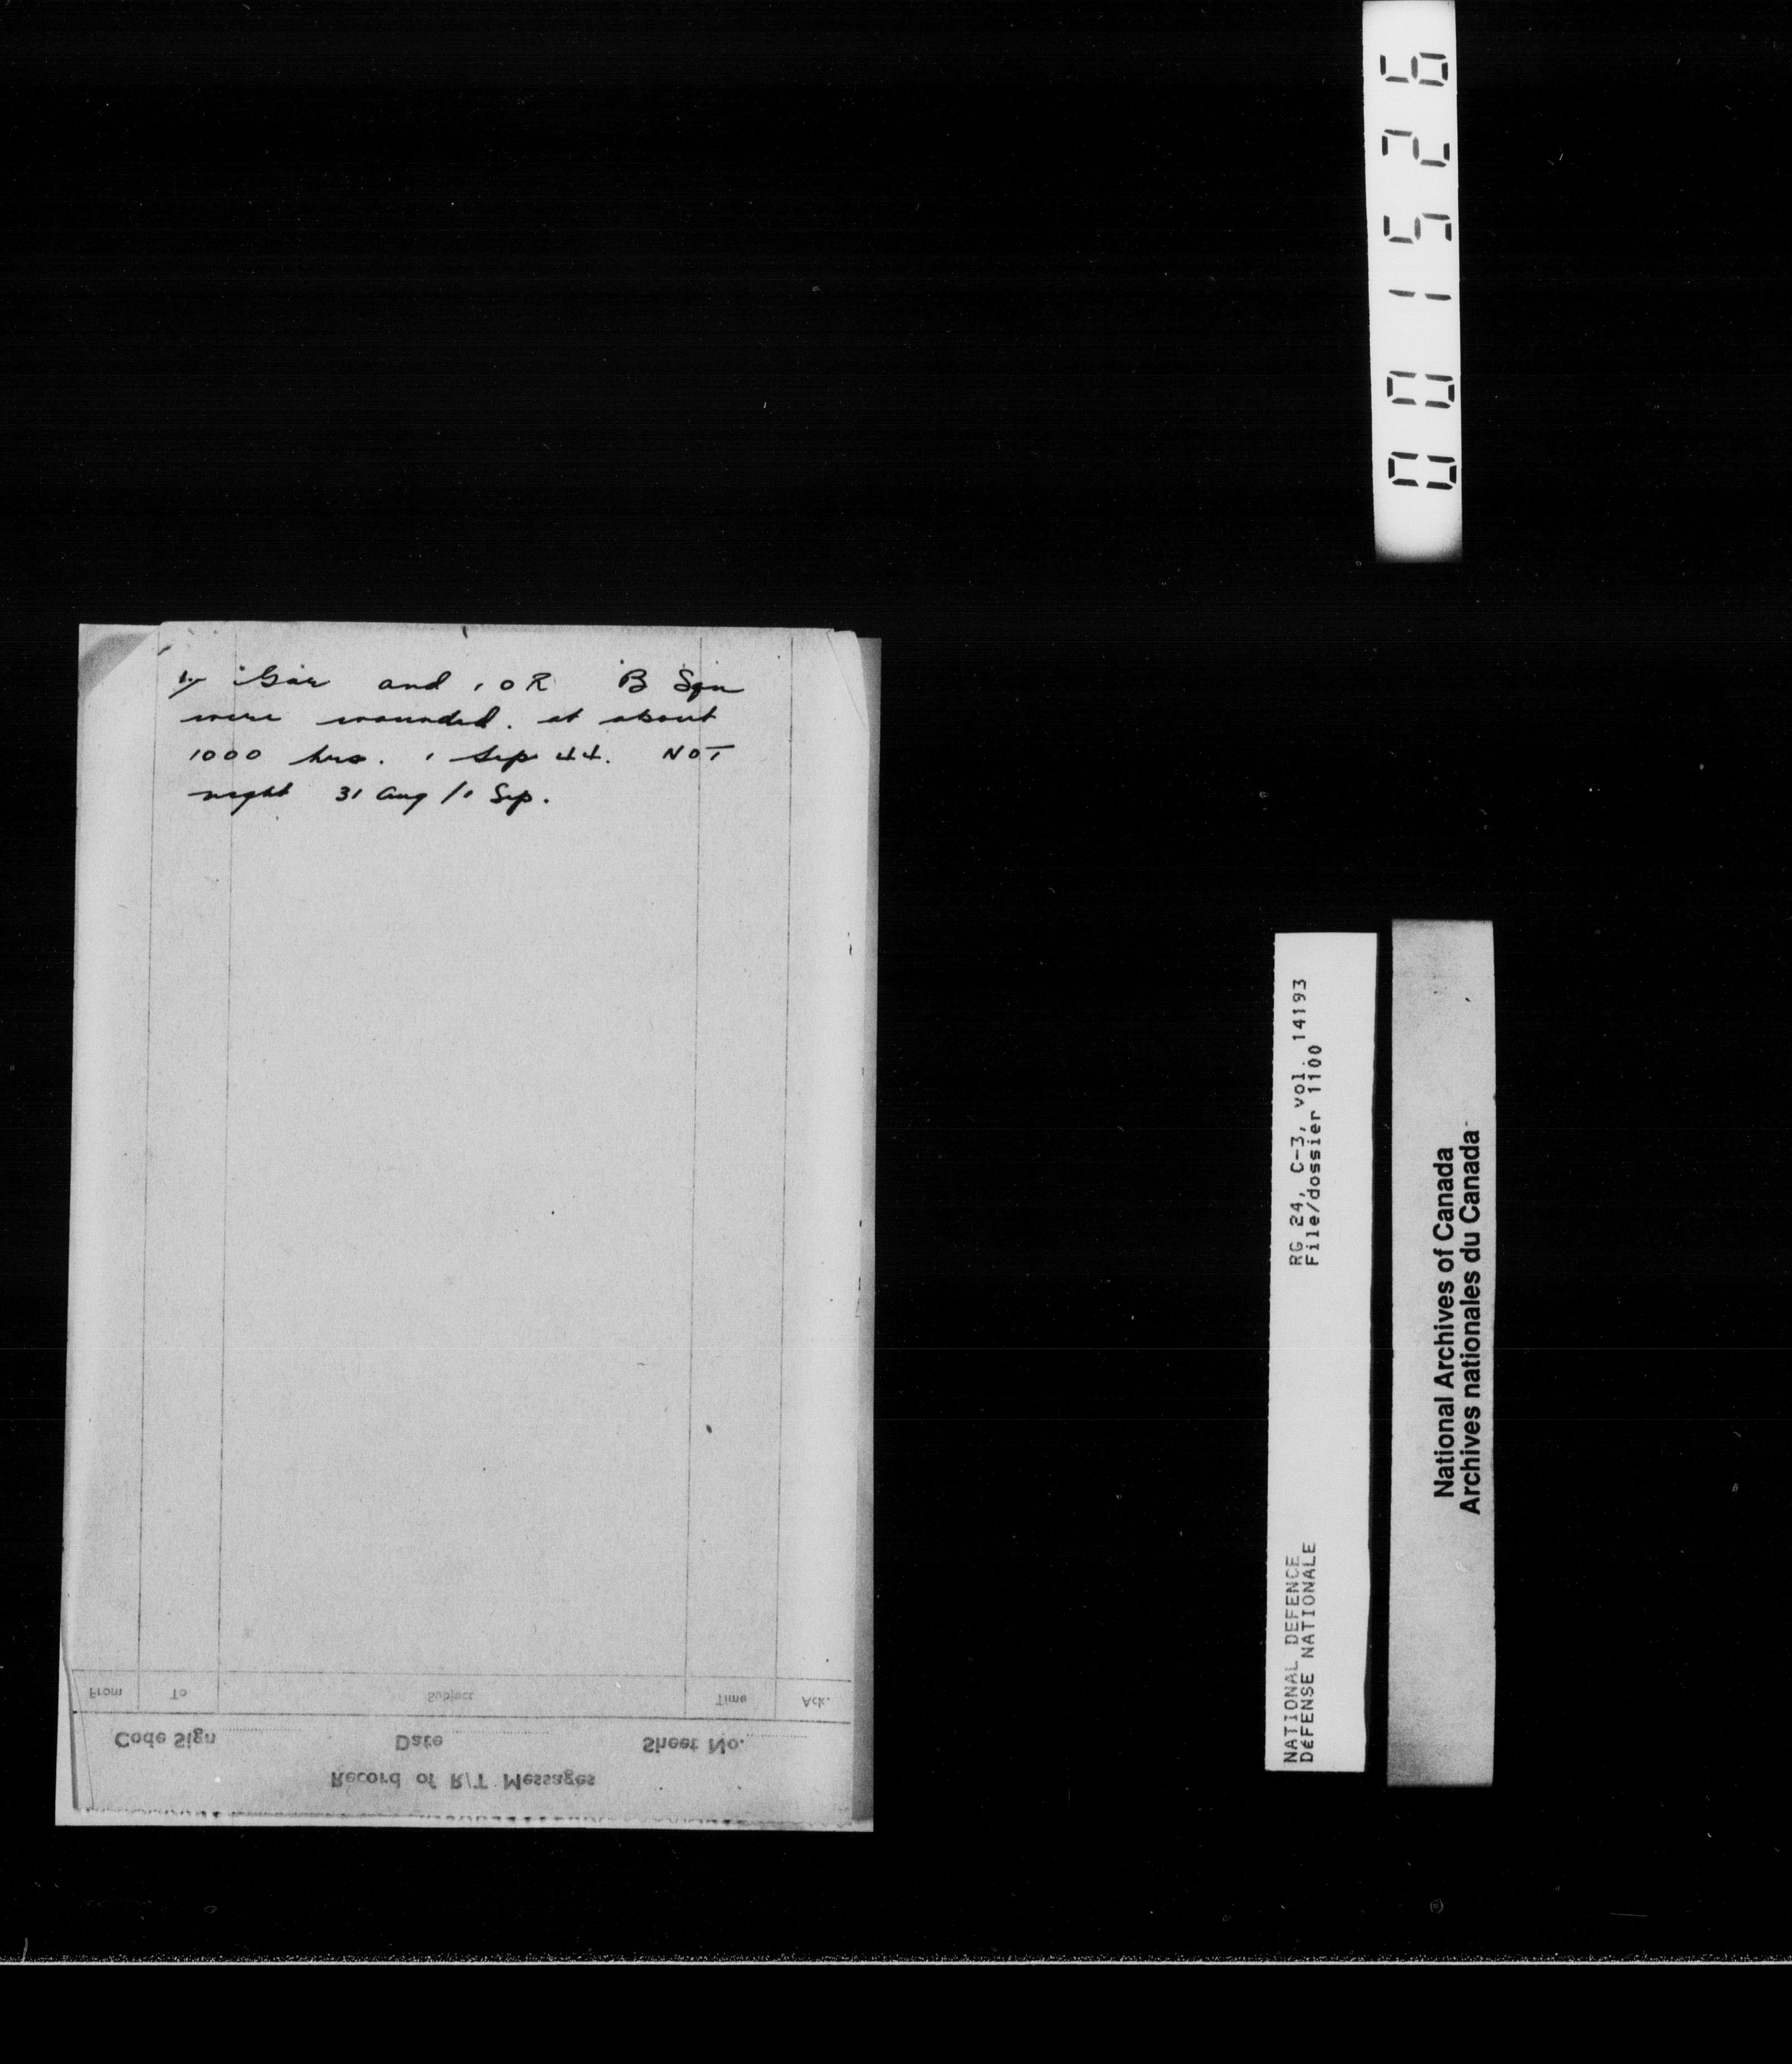 and 1 OR B Sqn
were wounded. at about
1000 hrs. 1 Sep 44. NOT
night 31 Aug/1 Sep.
From To Subject Time Ack.
Code Sign Date Sheet No.
Record of R/T Messages
001526
RG 24, C-3, vol. 14193
File/dossier 1100
NATIONAL DEFENCE
DéFENSE NATIONALE
National Archives of Canada
Archives nationales du Canada